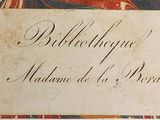 Bibliotheque
Madame de la Bora